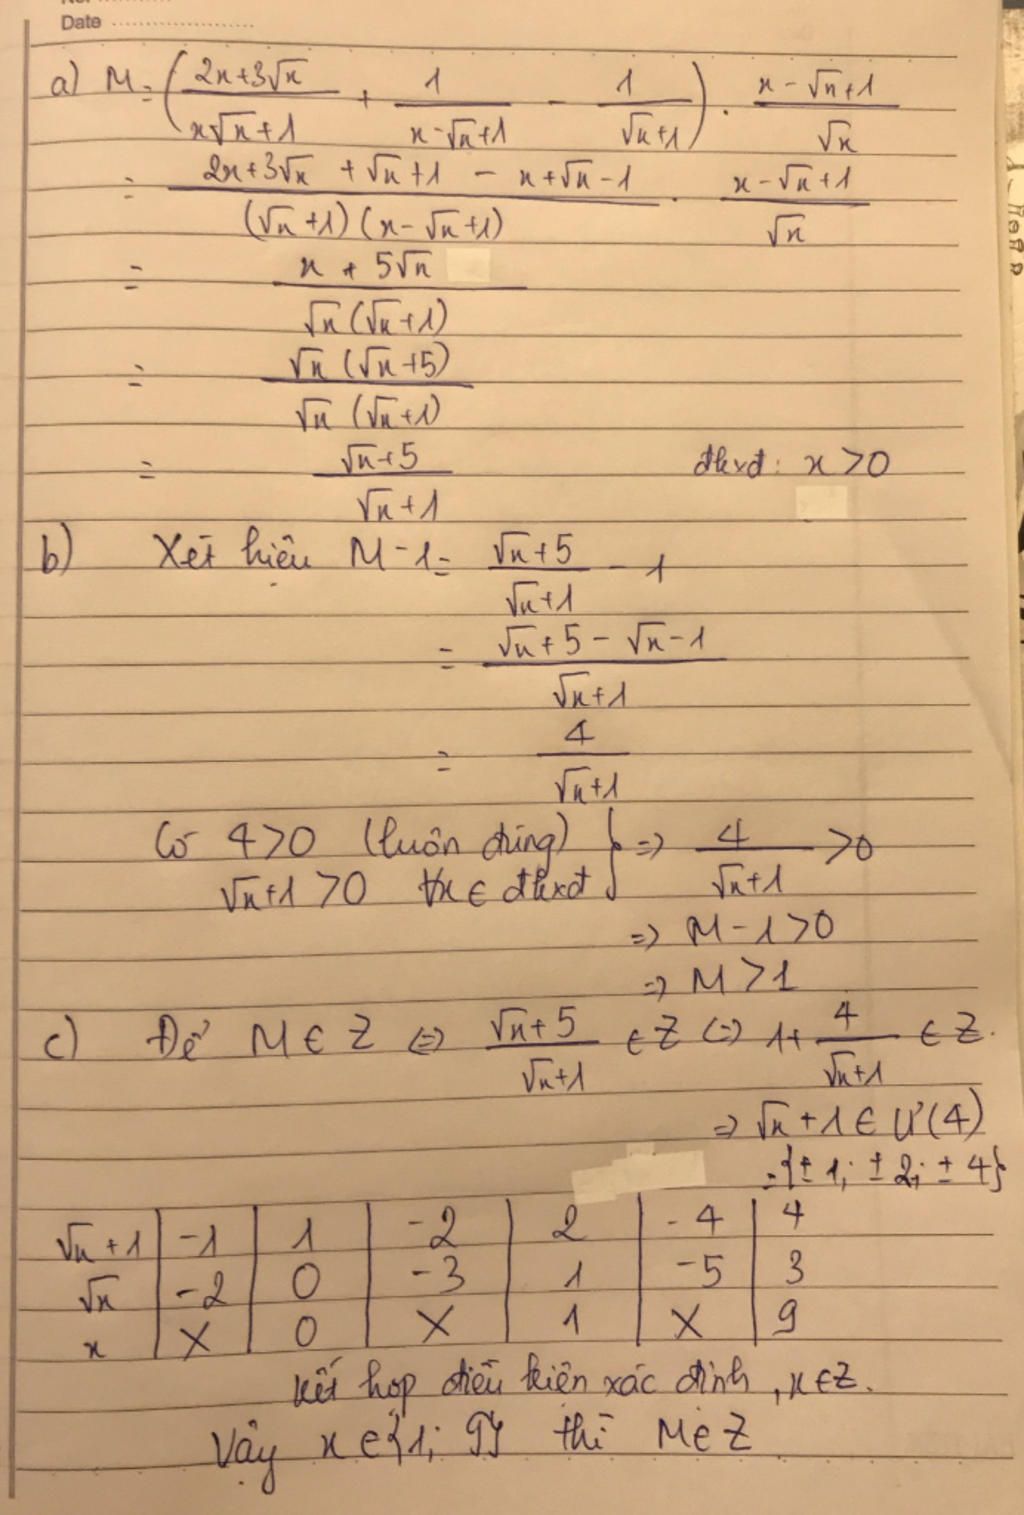 Date
a) M = ( (2x+3√x)/(x√x+1) + 1/(x-√x+1) - 1/(√x+1) ) . (x-√x+1)/√x
= (2x+3√x + √x+1 - x+√x-1)/((√x+1)(x-√x+1)) . (x-√x+1)/√x
= (x + 5√x)/(√x(√x+1))
= (√x(√x+5))/(√x(√x+1))
= (√x+5)/(√x+1) đkxđ: x>0
b) Xét hiệu M-1 = (√x+5)/(√x+1) - 1
= (√x+5-√x-1)/(√x+1)
= 4/(√x+1)
Có 4>0 (luôn đúng)
√x+1>0 ∀x∈ đkxđ } => 4/(√x+1) >0
=> M-1>0
=> M>1
c) Để M∈Z <=> (√x+5)/(√x+1) ∈Z <=> 1+ 4/(√x+1) ∈Z.
=> √x+1∈Ư(4)
={±1; ±2; ±4}
√x+1 | -1 | 1 | -2 | 2 | -4 | 4
√x | -2 | 0 | -3 | 1 | -5 | 3
x | X | 0 | X | 1 | X | 9
Kết hợp điều kiện xác định, x∈Z.
Vậy x∈{1; 9} thì M∈Z